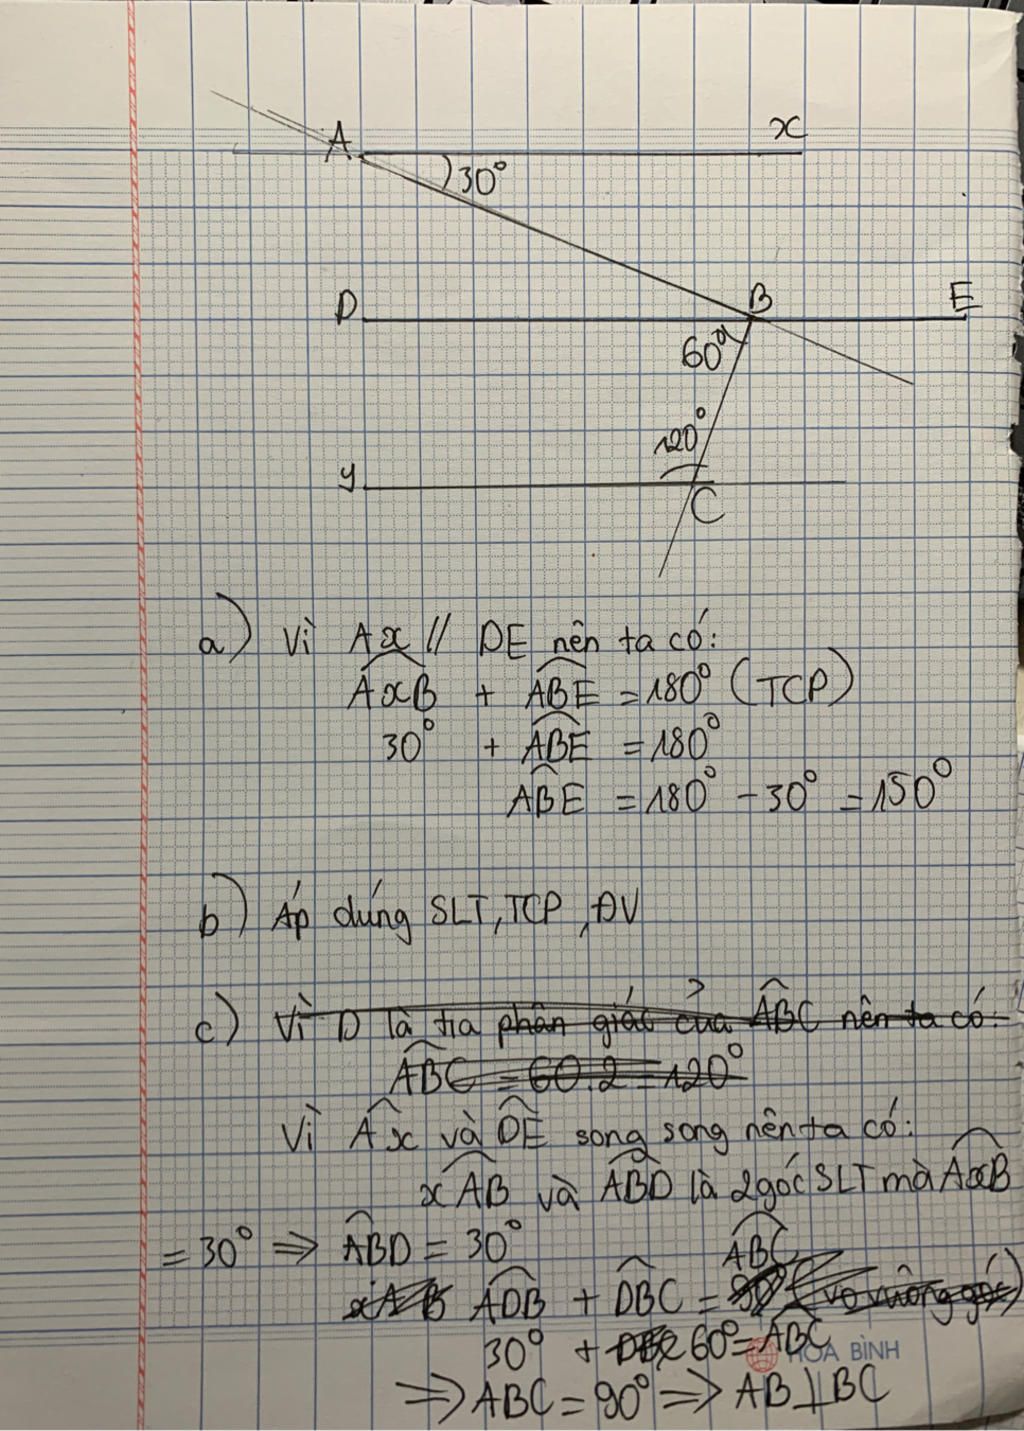 A x
30°
D B E
60°
120°
y C
a) Vì Ax // DE nên ta có:
AxB + ABE = 180° (TCP)
30° + ABE = 180°
ABE = 180° - 30° = 150°
b) Áp dúng SLT, TCP, ĐV
c) Vì D là tia phân giác của ABC nên ta có:
ABC = 60.2 = 120°
Vì Ax và DE song song nên ta có:
xAB và ABD là 2 góc SLT mà AxB
= 30° ⇒ ABD = 30°
ABC
ADB + DBC =
30° + 60° = ABC
HÒA BÌNH
⇒ ABC = 90° ⇒ AB ⊥ BC